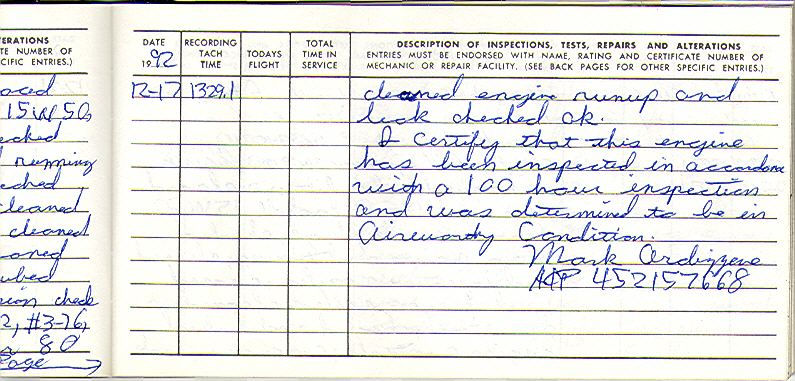 ERATIONS
TE NUMBER OF
CIFIC ENTRIES.)
15W50,
cked
running
eched
cleaned
cleaned
oned
ubed
sion check
2, #3-76,
80
Page →
DATE
1992
RECORDING
TACH
TIME
TODAYS
FLIGHT
TOTAL
TIME IN
SERVICE
DESCRIPTION OF INSPECTIONS, TESTS, REPAIRS AND ALTERATIONS
ENTRIES MUST BE ENDORSED WITH NAME, RATING AND CERTIFICATE NUMBER OF
MECHANIC OR REPAIR FACILITY. (SEE BACK PAGES FOR OTHER SPECIFIC ENTRIES.)
12-17 1329.1 cleaned engine runup and
leak checked ok.
I certify that this engine
has been inspected in accordance
with a 100 hour inspection
and was determined to be in
Aireworthy Condition.
Mark Ardizzone
A&P 452157668